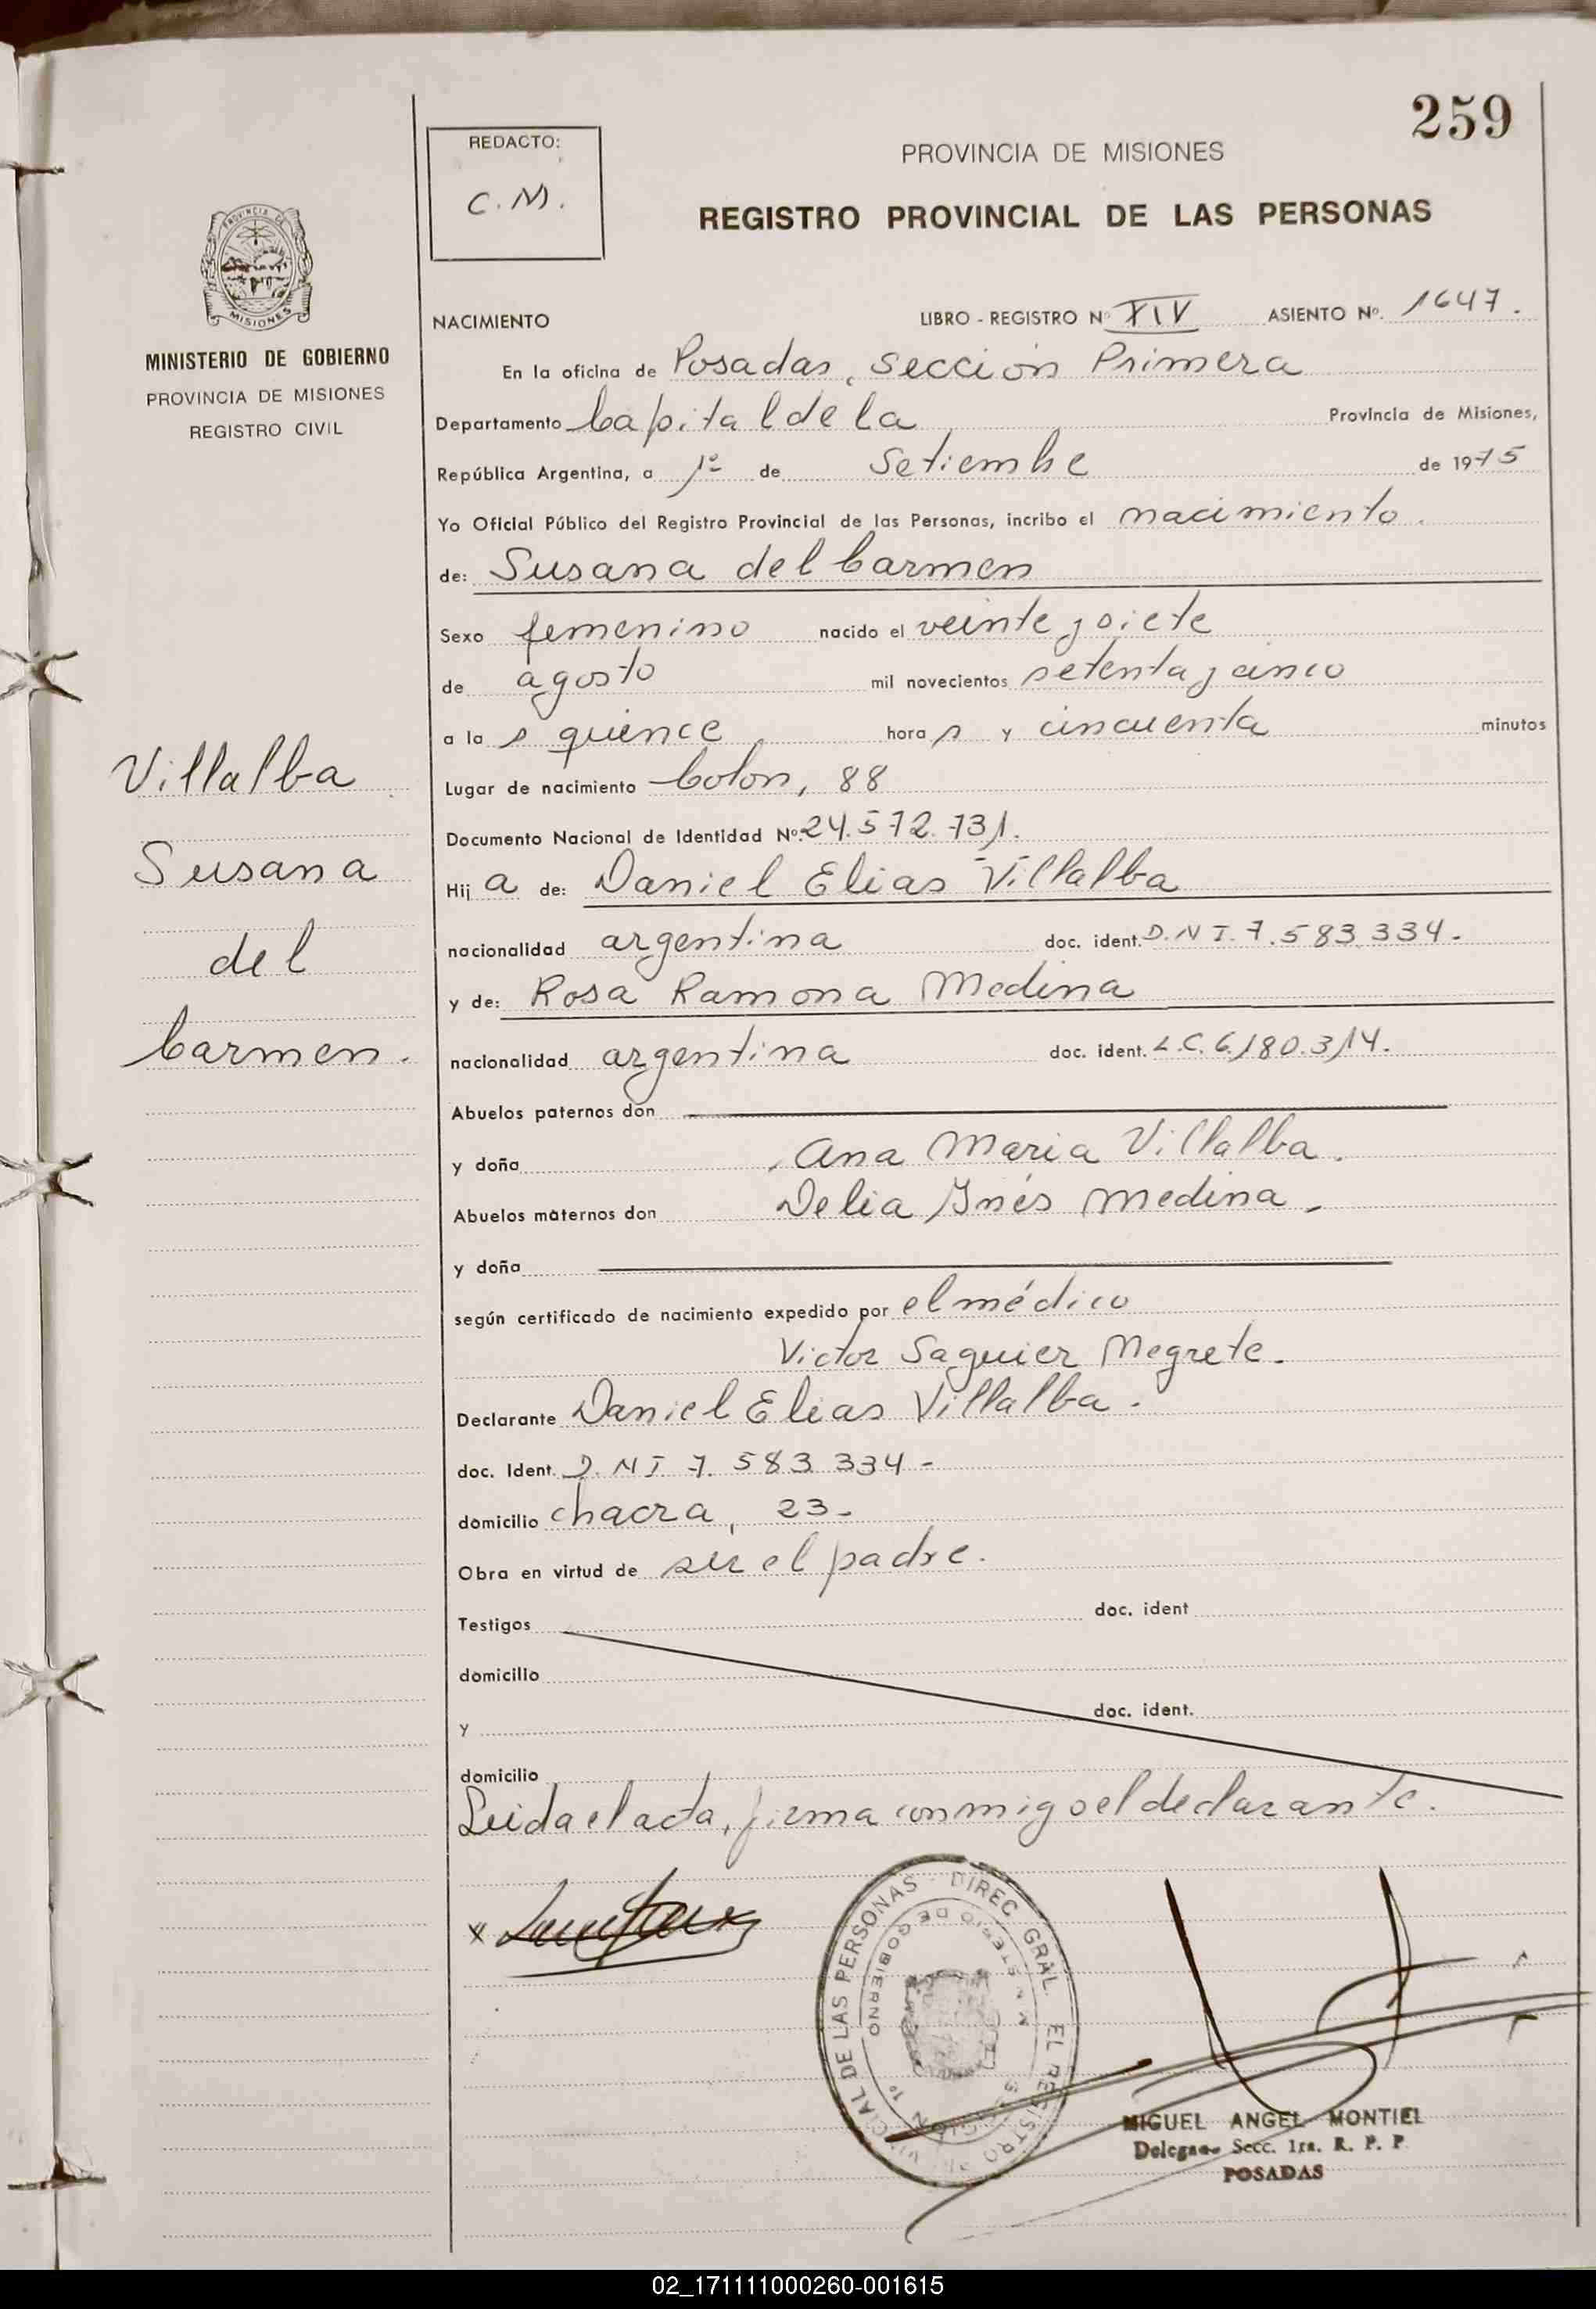 259
REDACTO:
C. M.
PROVINCIA DE MISIONES
REGISTRO PROVINCIAL DE LAS PERSONAS
PROVINCIA DE
MISIONES
MINISTERIO DE GOBIERNO
PROVINCIA DE MISIONES
REGISTRO CIVIL
NACIMIENTO LIBRO - REGISTRO Nº XIV ASIENTO Nº. 1647.
En la oficina de Posadas, Sección Primera
Departamento Capital de la Provincia de Misiones,
República Argentina, a 1º de Setiembre de 1975
Yo Oficial Público del Registro Provincial de las Personas, incribo el nacimiento.
de: Susana del Carmen
Sexo femenino nacido el veinte y siete
de agosto mil novecientos setenta y cinco
a la s quince hora s y cincuenta minutos
Lugar de nacimiento Colon, 88
Documento Nacional de Identidad Nº. 24.572.731.
Hij a de: Daniel Elias Villalba
nacionalidad argentina doc. ident. D.N.I. 7.583.334.-
y de: Rosa Ramona Medina
nacionalidad argentina doc. ident. L.C. 6.180.314.
Abuelos paternos don
y doña Ana Maria Villalba.
Abuelos maternos don Delia Inés Medina.
y doña
según certificado de nacimiento expedido por el médico
Victor Saguier Negrete.
Declarante Daniel Elias Villalba.
doc. Ident. D.N.I 7.583.334-
domicilio chacra, 23-
Obra en virtud de ser el padre.
Testigos doc. ident
domicilio
y doc. ident.
domicilio
Leida el acta, firma conmigo el declarante.
Villalba
Susana
del
Carmen.
DIREC. GRAL. EL REGISTRO PROVINCIAL DE LAS PERSONAS
MINISTERIO DE GOBIERNO
SECCION 1º
MIGUEL ANGEL MONTIEL
Delegado Secc. 1ra. R. P. P.
POSADAS
02_171111000260-001615